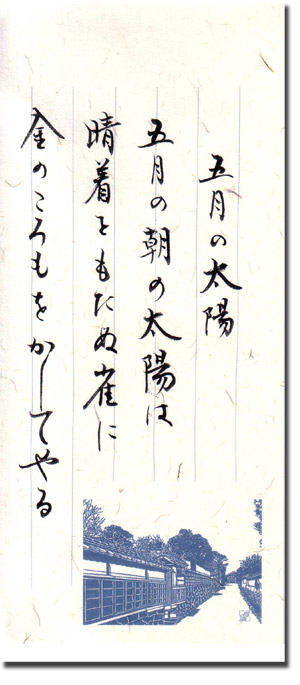 五月の太陽
五月の朝の太陽は
晴着をもたぬ雀に
金のころもをかしてやる